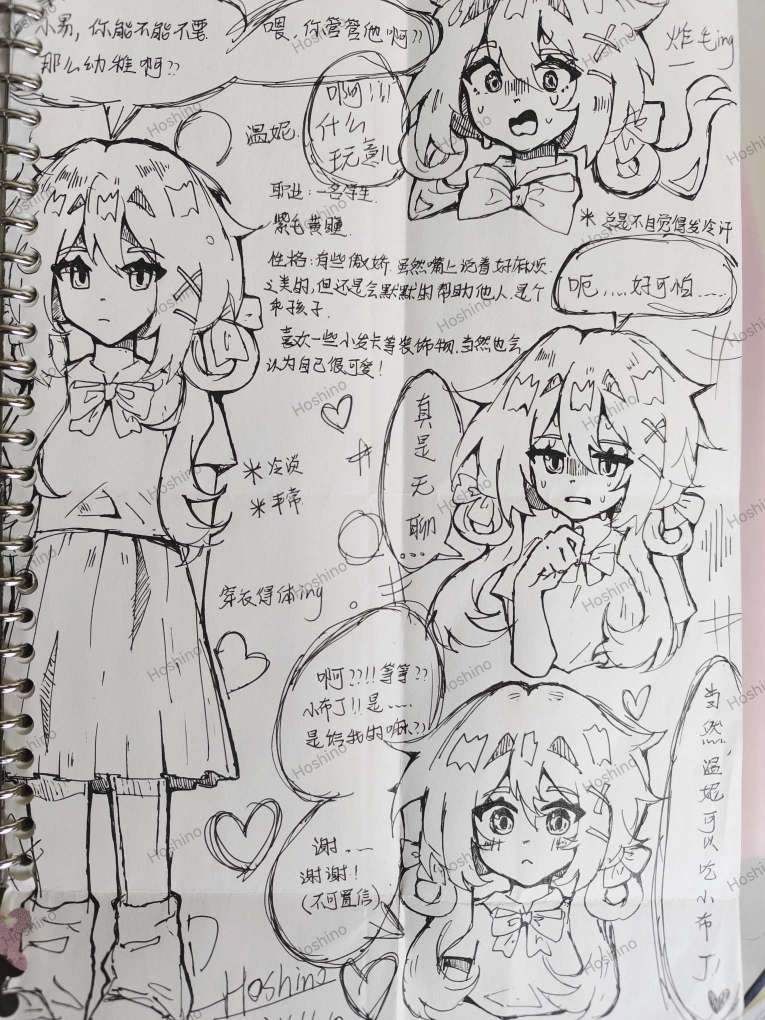 小易，你能不能不要
那么幼稚啊??
喂，你管管他啊??
炸毛ing
啊!!!
什么
玩意儿
温妮.
职业：一名学生.
紫毛黄瞳.
※总是不自觉得发冷汗
性格：有些傲娇.虽然嘴上说着好麻烦
之类的,但还是会默默的帮助他人.是个
乖孩子.
喜欢一些小发卡等装饰物.当然也会
认为自己很可爱!
呃......好可怕......
真是无聊...
※冷淡
※平常
穿衣得体ing
啊??!!等等??
小布丁!!是....
是给我的嘛??
谢...
谢谢!
(不可置信)
当然,温妮可以吃小布丁
Hoshino